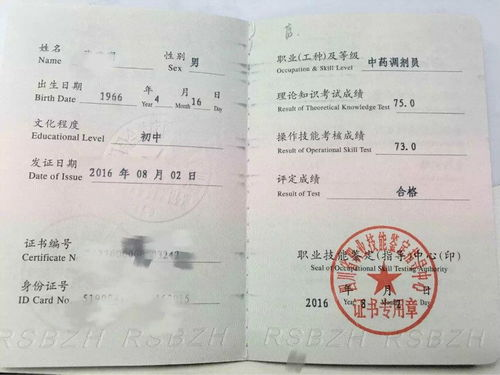 姓名
性别 男
Name
Sex
出生日期 年 月 日
Birth Date 1966 Year 4 Month 16 Day
文化程度
Educational Level 初中
发证日期
Date of Issue 2016 年 08 月 02 日
证书编号
Certificate N
身份证号
ID Card No
RSBZH RSBZH
职业(工种)及等级 中药调剂员
Occupation & Skill Level
理论知识考试成绩
Result of Theoretical Knowledge Test 75.0
操作技能考核成绩
Result of Operational Skill Test 73.0
评定成绩
Result of Test 合格
职业技能鉴定(指导)中心(印)
Seal of Occupational Skill Testing Authority
四川省职业技能鉴定指导中心
证书专用章
2016 年 8 月 日
Year Month Day
RSBZH RSBZH